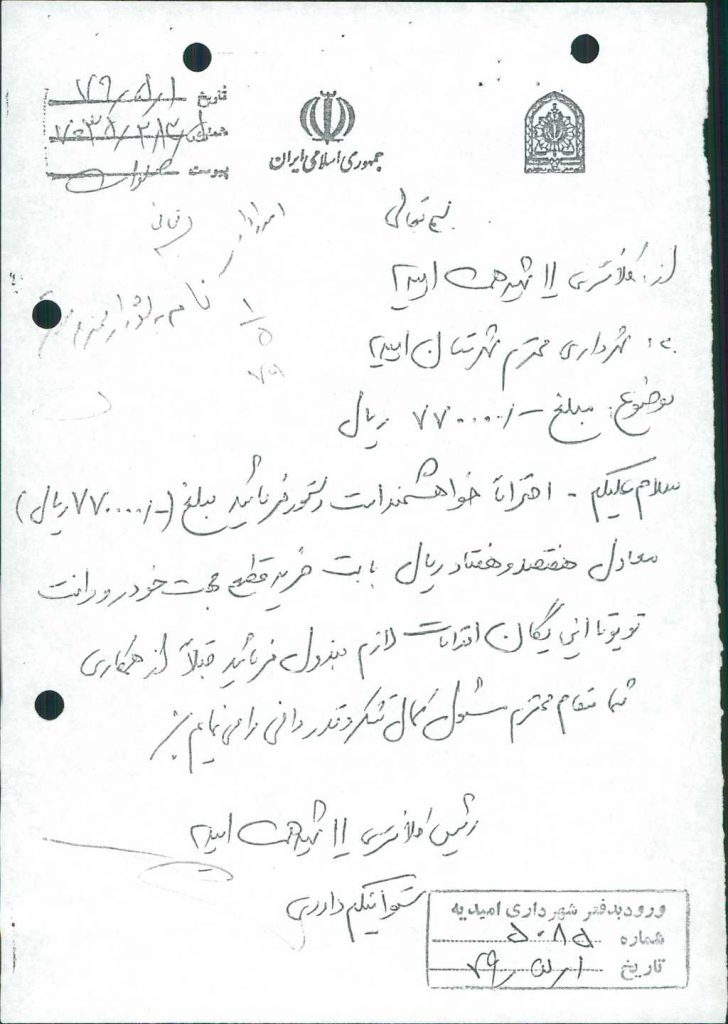 تاریخ ۷۹/۵/۱
شماره ۷۰۳۸/۲/۱۲
پیوست
جمهوری اسلامی ایران
بسمه تعالی
امور اداری
۱/۵
۷۹
از: کلانتری ۱۱ شهید همت امیدیه
به: شهرداری محترم شهرستان امیدیه
موضوع: مبلغ -/۷۷۰۰۰۰ ریال
سلام علیکم - احتراماً خواهشمند است دستور فرمائید مبلغ (-/۷۷۰۰۰۰ ریال)
معادل هفتصد و هفتاد ریال بابت خرید قطعه جهت خودرو وانت
تویوتا این یگان اقدامات لازم مبذول فرمائید قبلاً از همکاری
شما مقام محترم مسئول کمال تشکر و قدردانی را می نمایم
رئیس کلانتری ۱۱ شهید همت امیدیه
ورود بدفتر شهرداری امیدیه
شماره ۵۰۸۵
تاریخ ۷۹/۵/۱